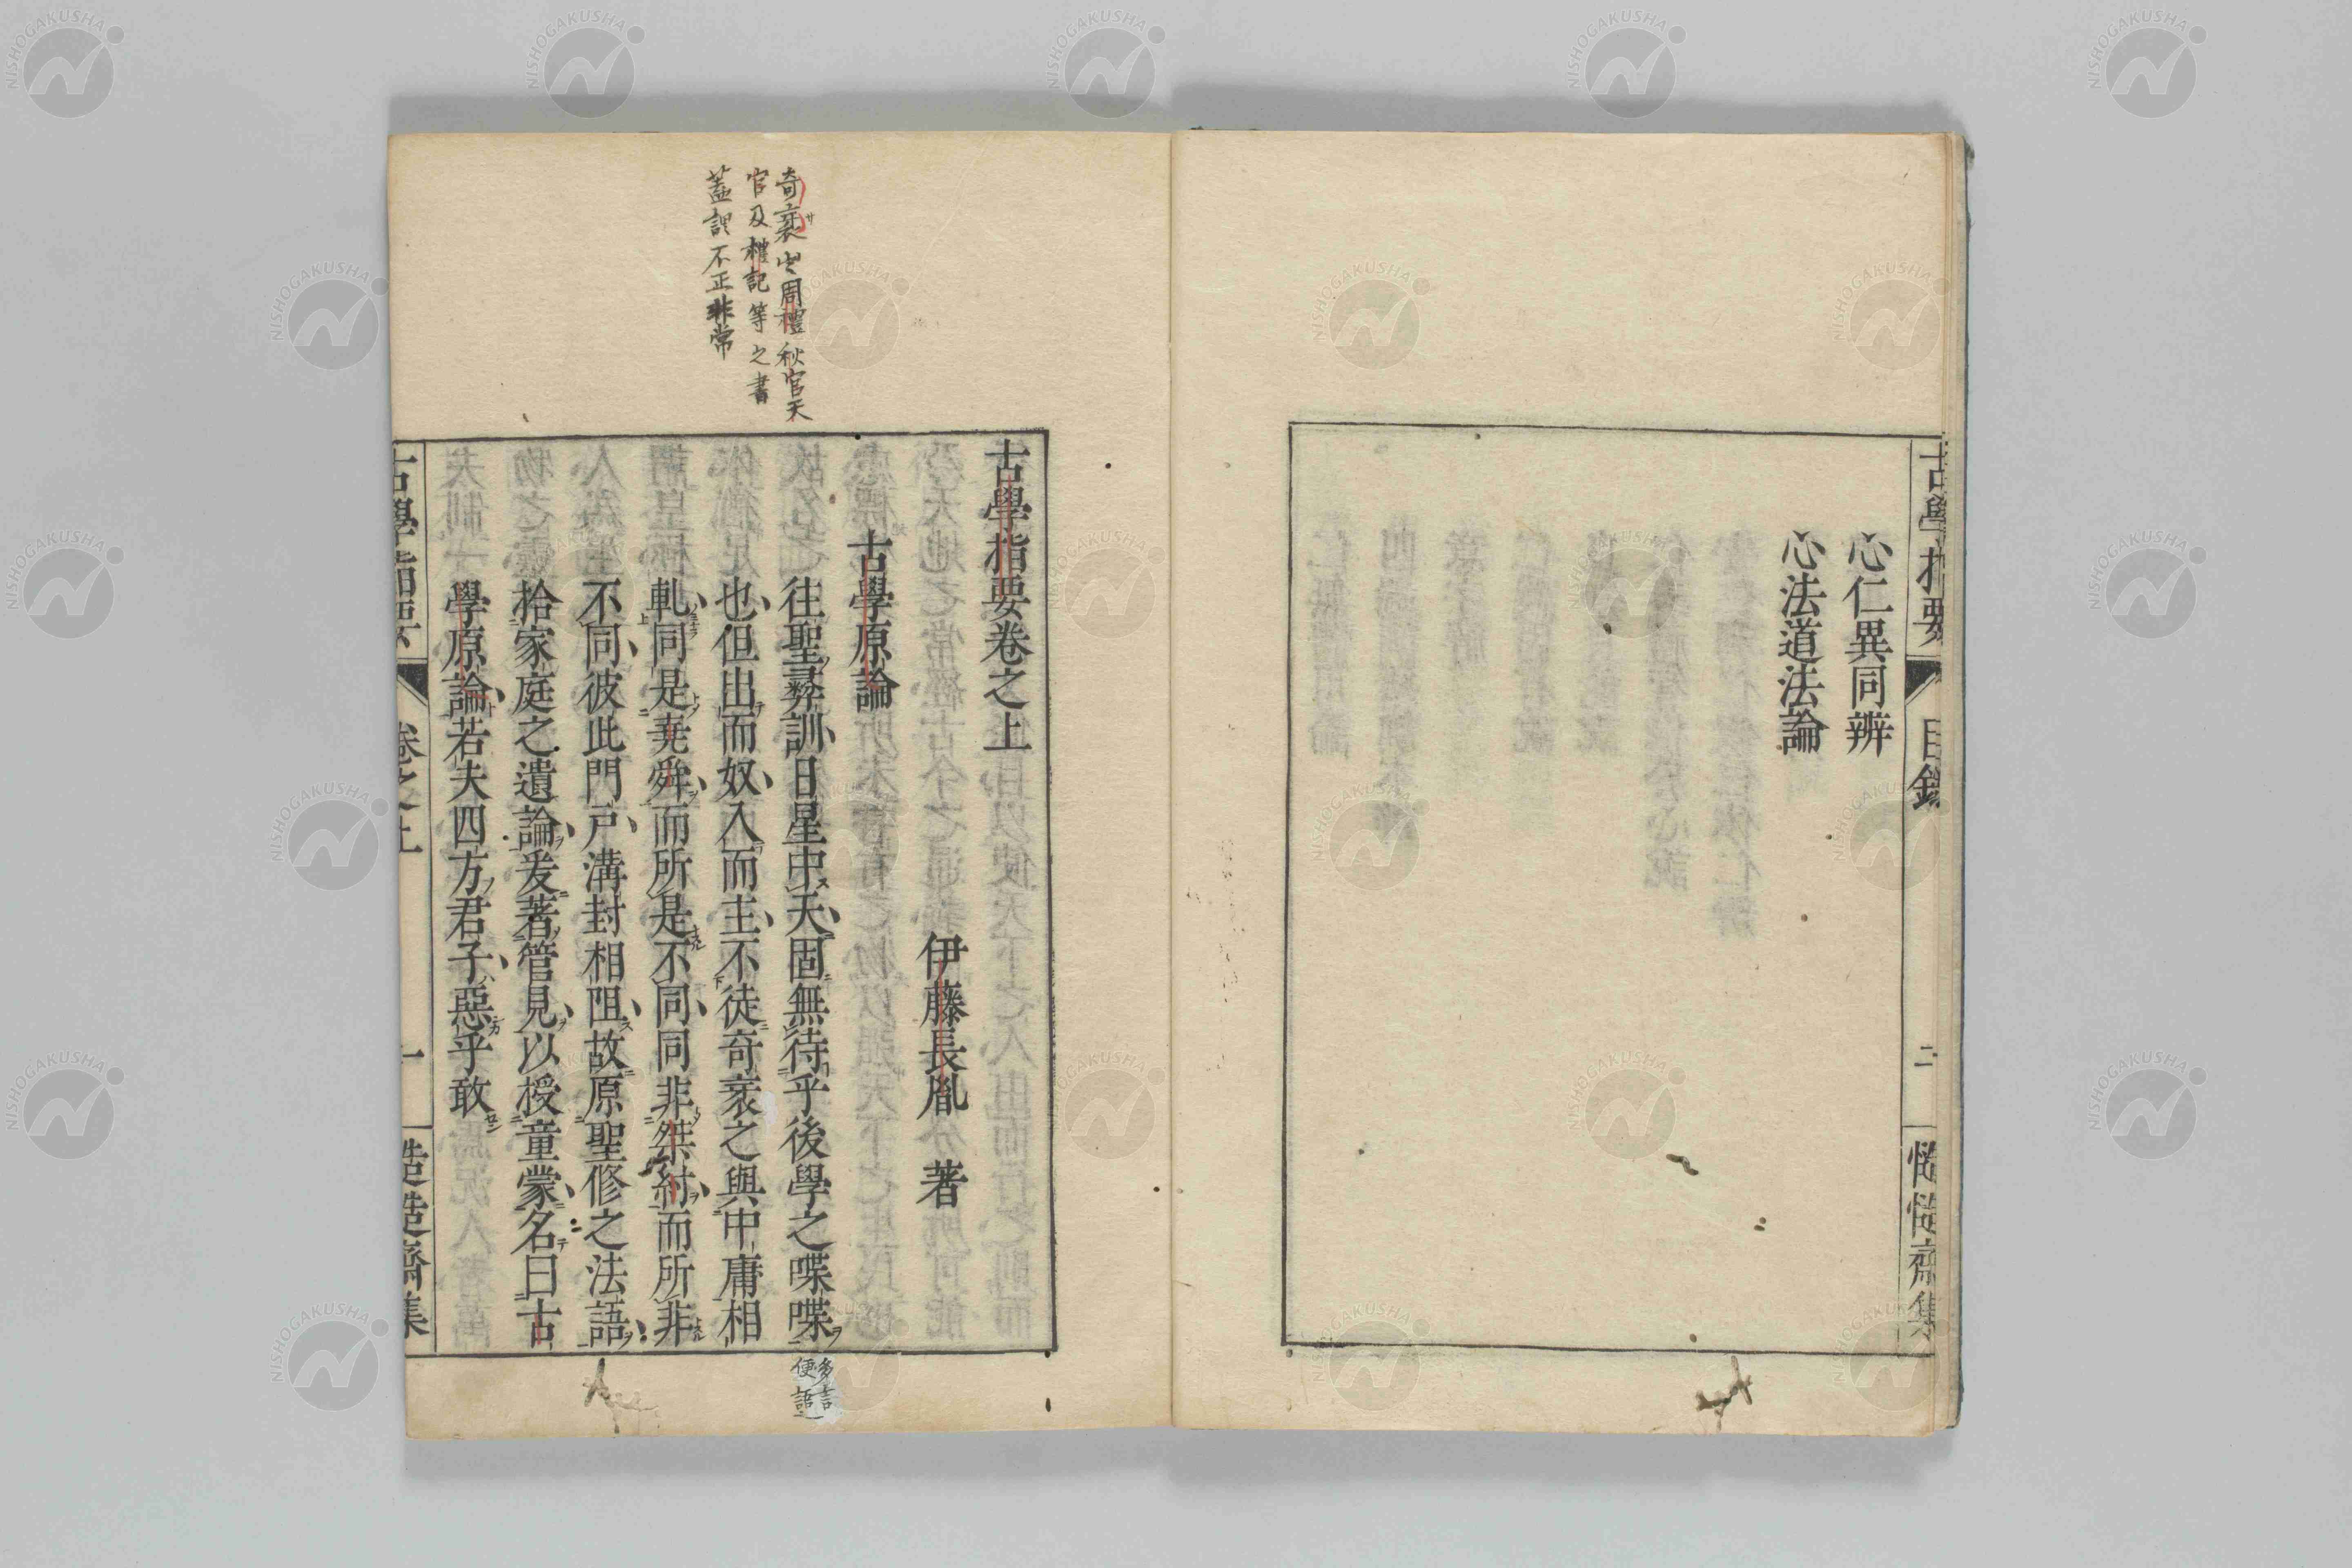 古學指要
目錄
二
慥慥齋集
心仁異同辨
心法道法論
奇衺出周禮秋官天
官及禮記等之書
蓋謂不正非常
古學指要卷之上
伊藤長胤 著
古學原論
往聖彜訓日星中天固無待乎後學之喋喋
也但出而奴入而主不徒奇衺之與中庸相
軋同是堯舜而所是不同同非桀紂而所非
不同彼此門戸溝封相阻故原聖修之法語
拾家庭之遺論爰著管見以授童蒙名曰古
學原論若夫四方君子惡乎敢
多言
便語
古學指要
卷之上
一
慥慥齋集
NISHOGAKUSHA